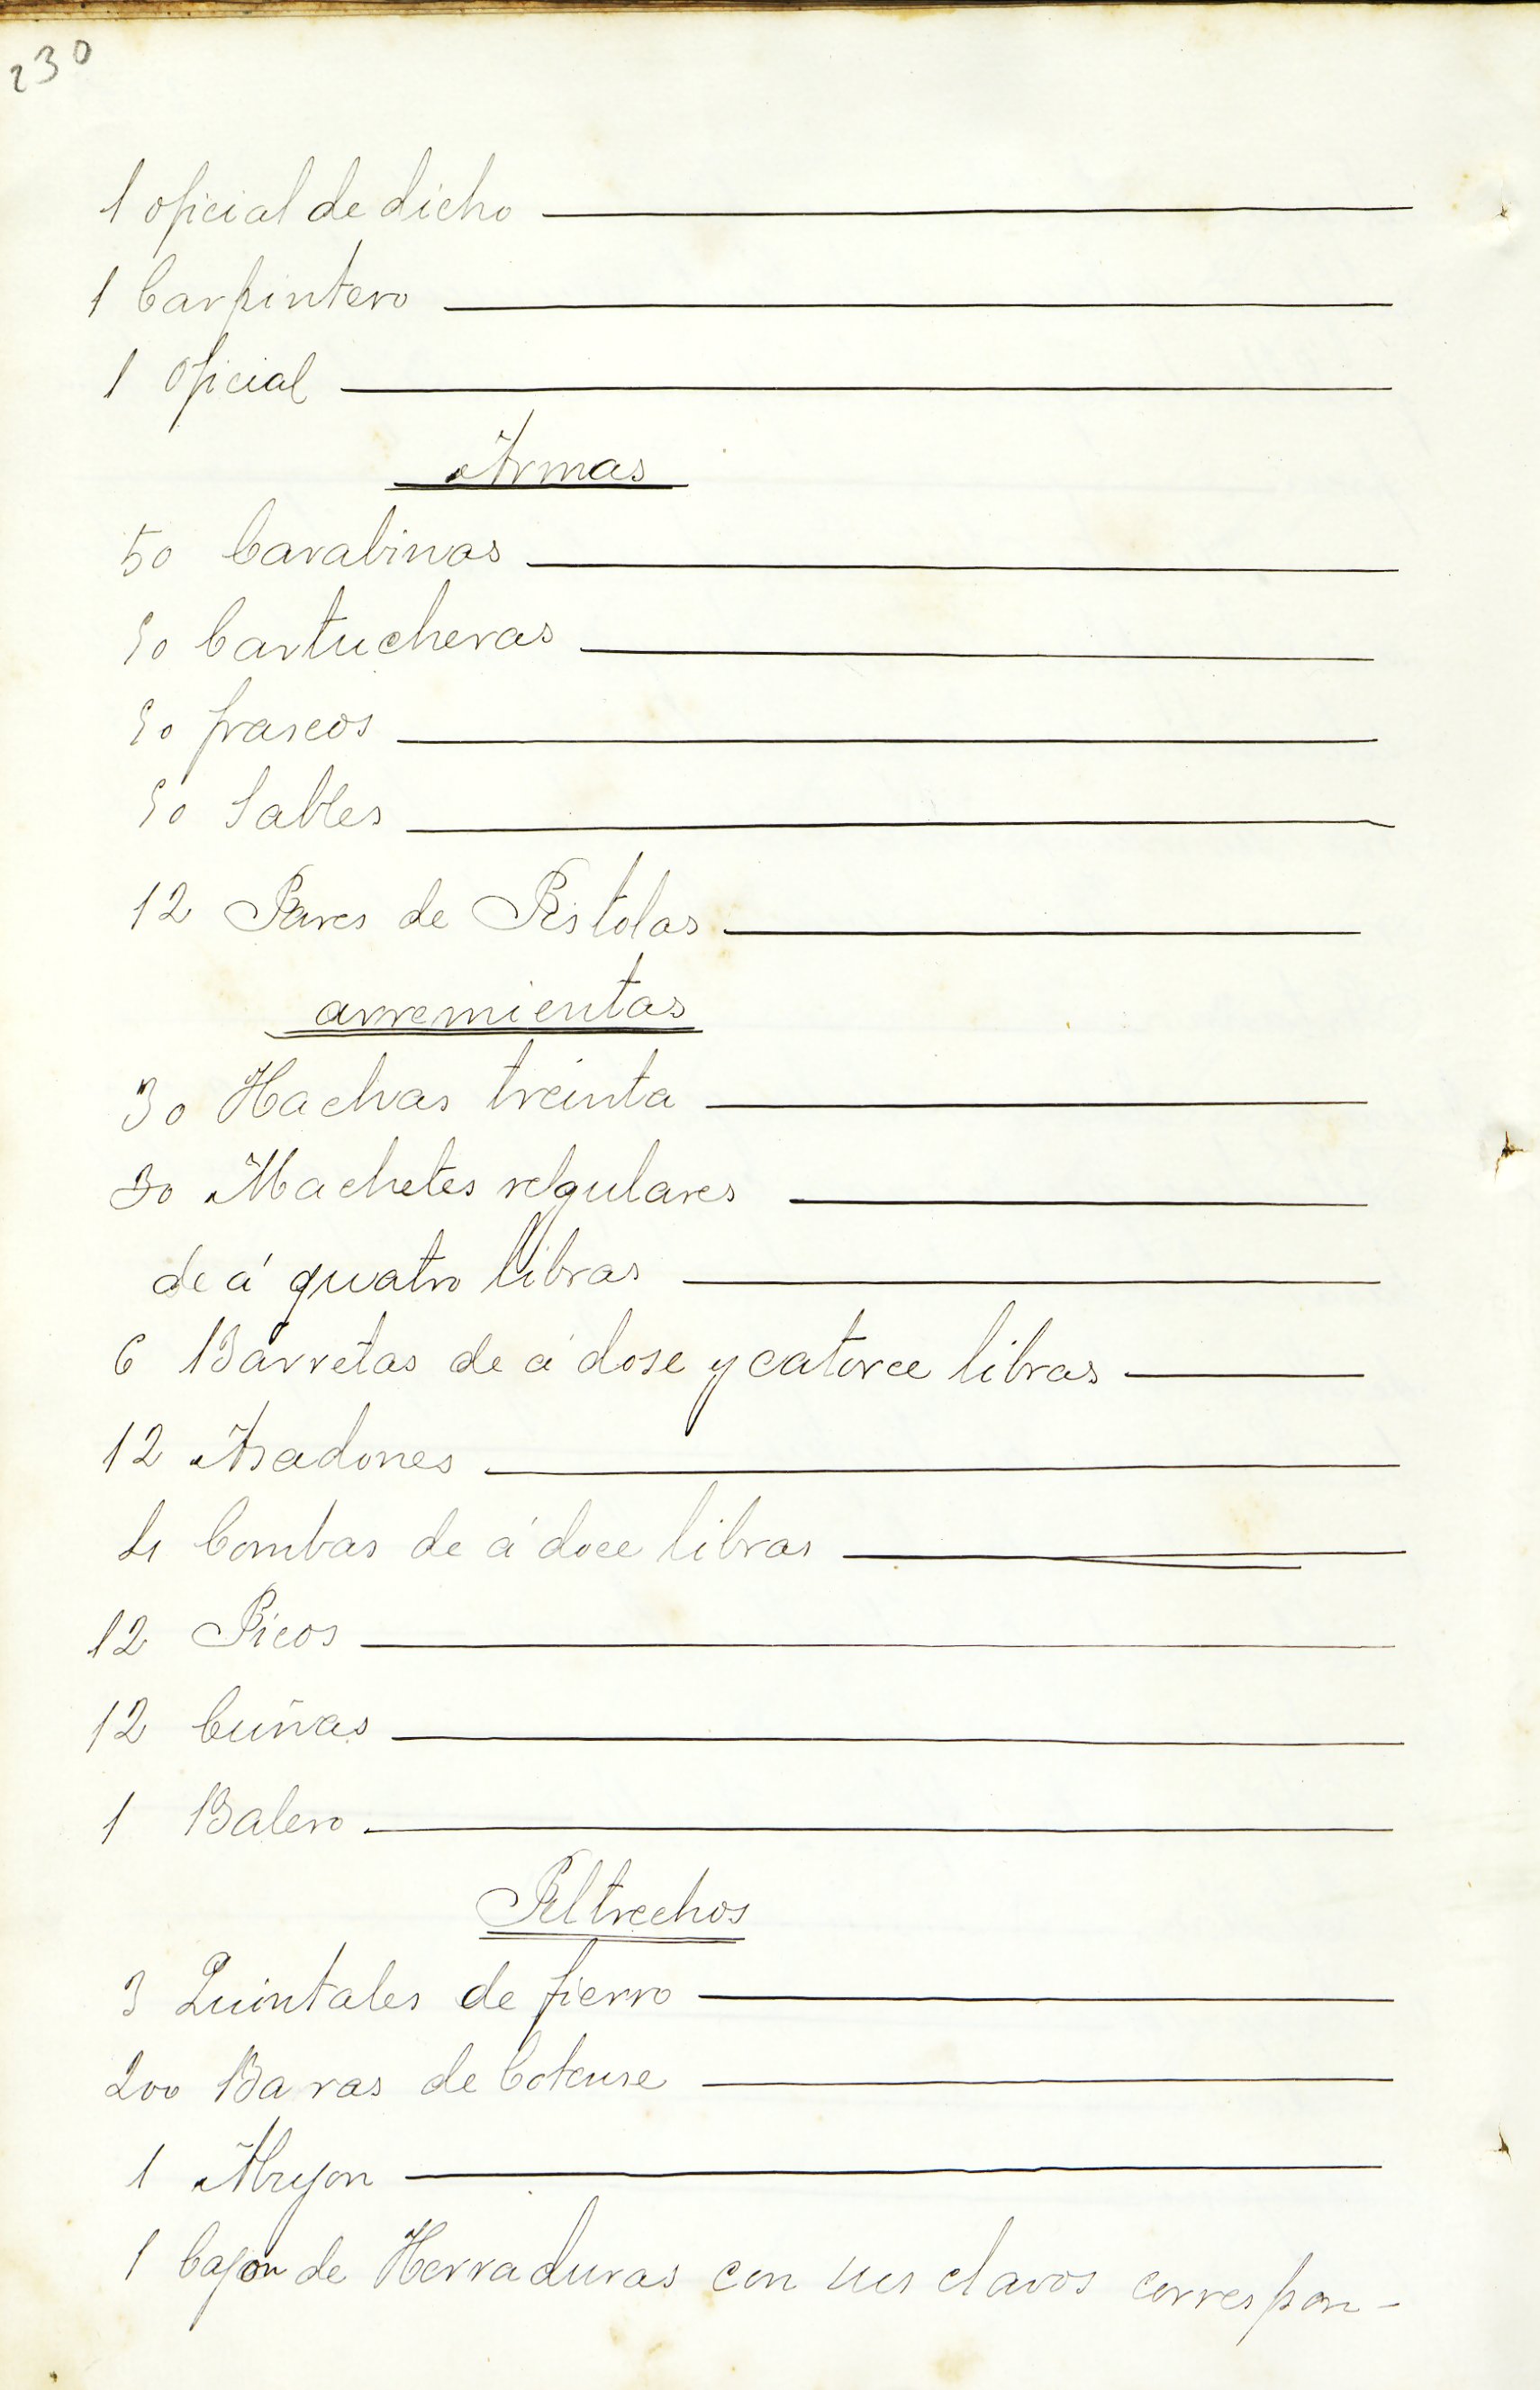 230
1 oficial de dicho
1 Carpintero
1 Oficial
Armas
50 Carabinas
50 Cartucheras
50 frascos
50 Sables
12 Pares de Pistolas
arremientas
30 Hachas treinta
30 Machetes relgulares
de á quatro libras
6 Barretas de á dose y catorce libras
12 Asadones
4 Combas de á doce libras
12 Picos
12 Cuñas
1 Balero
Peltrechos
3 Quintales de fierro
200 Baras de Cotense
1
1 Cajon de Herraduras con sus clavos correspon-